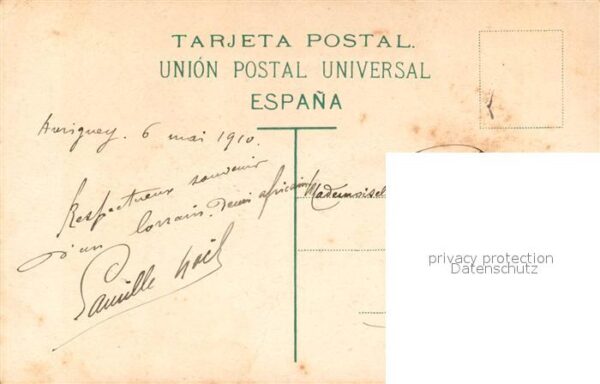 TARJETA POSTAL.
UNIÓN POSTAL UNIVERSAL
ESPAÑA
6 mai 1910.
Respectueux souvenir
d'un lorrain. Demi africain
Camille Noël
Mademoisel
privacy protection
Datenschutz